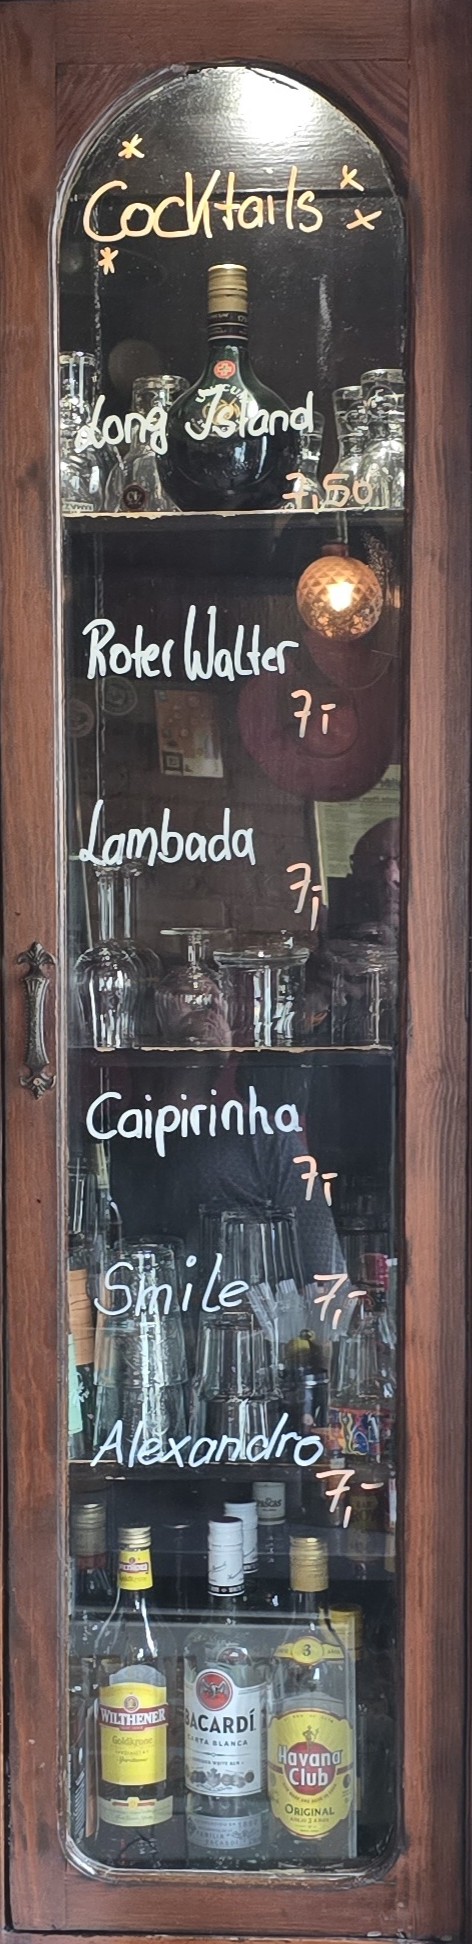 Cocktails
Long Island
7,50
Roter Walter
7,-
Lambada
7,-
Caipirinha
7,-
Smile 7,-
Alexandro
7,-
WILTHENER
Goldkrone
BACARDÍ
CARTA BLANCA
3
Havana
Club
ORIGINAL